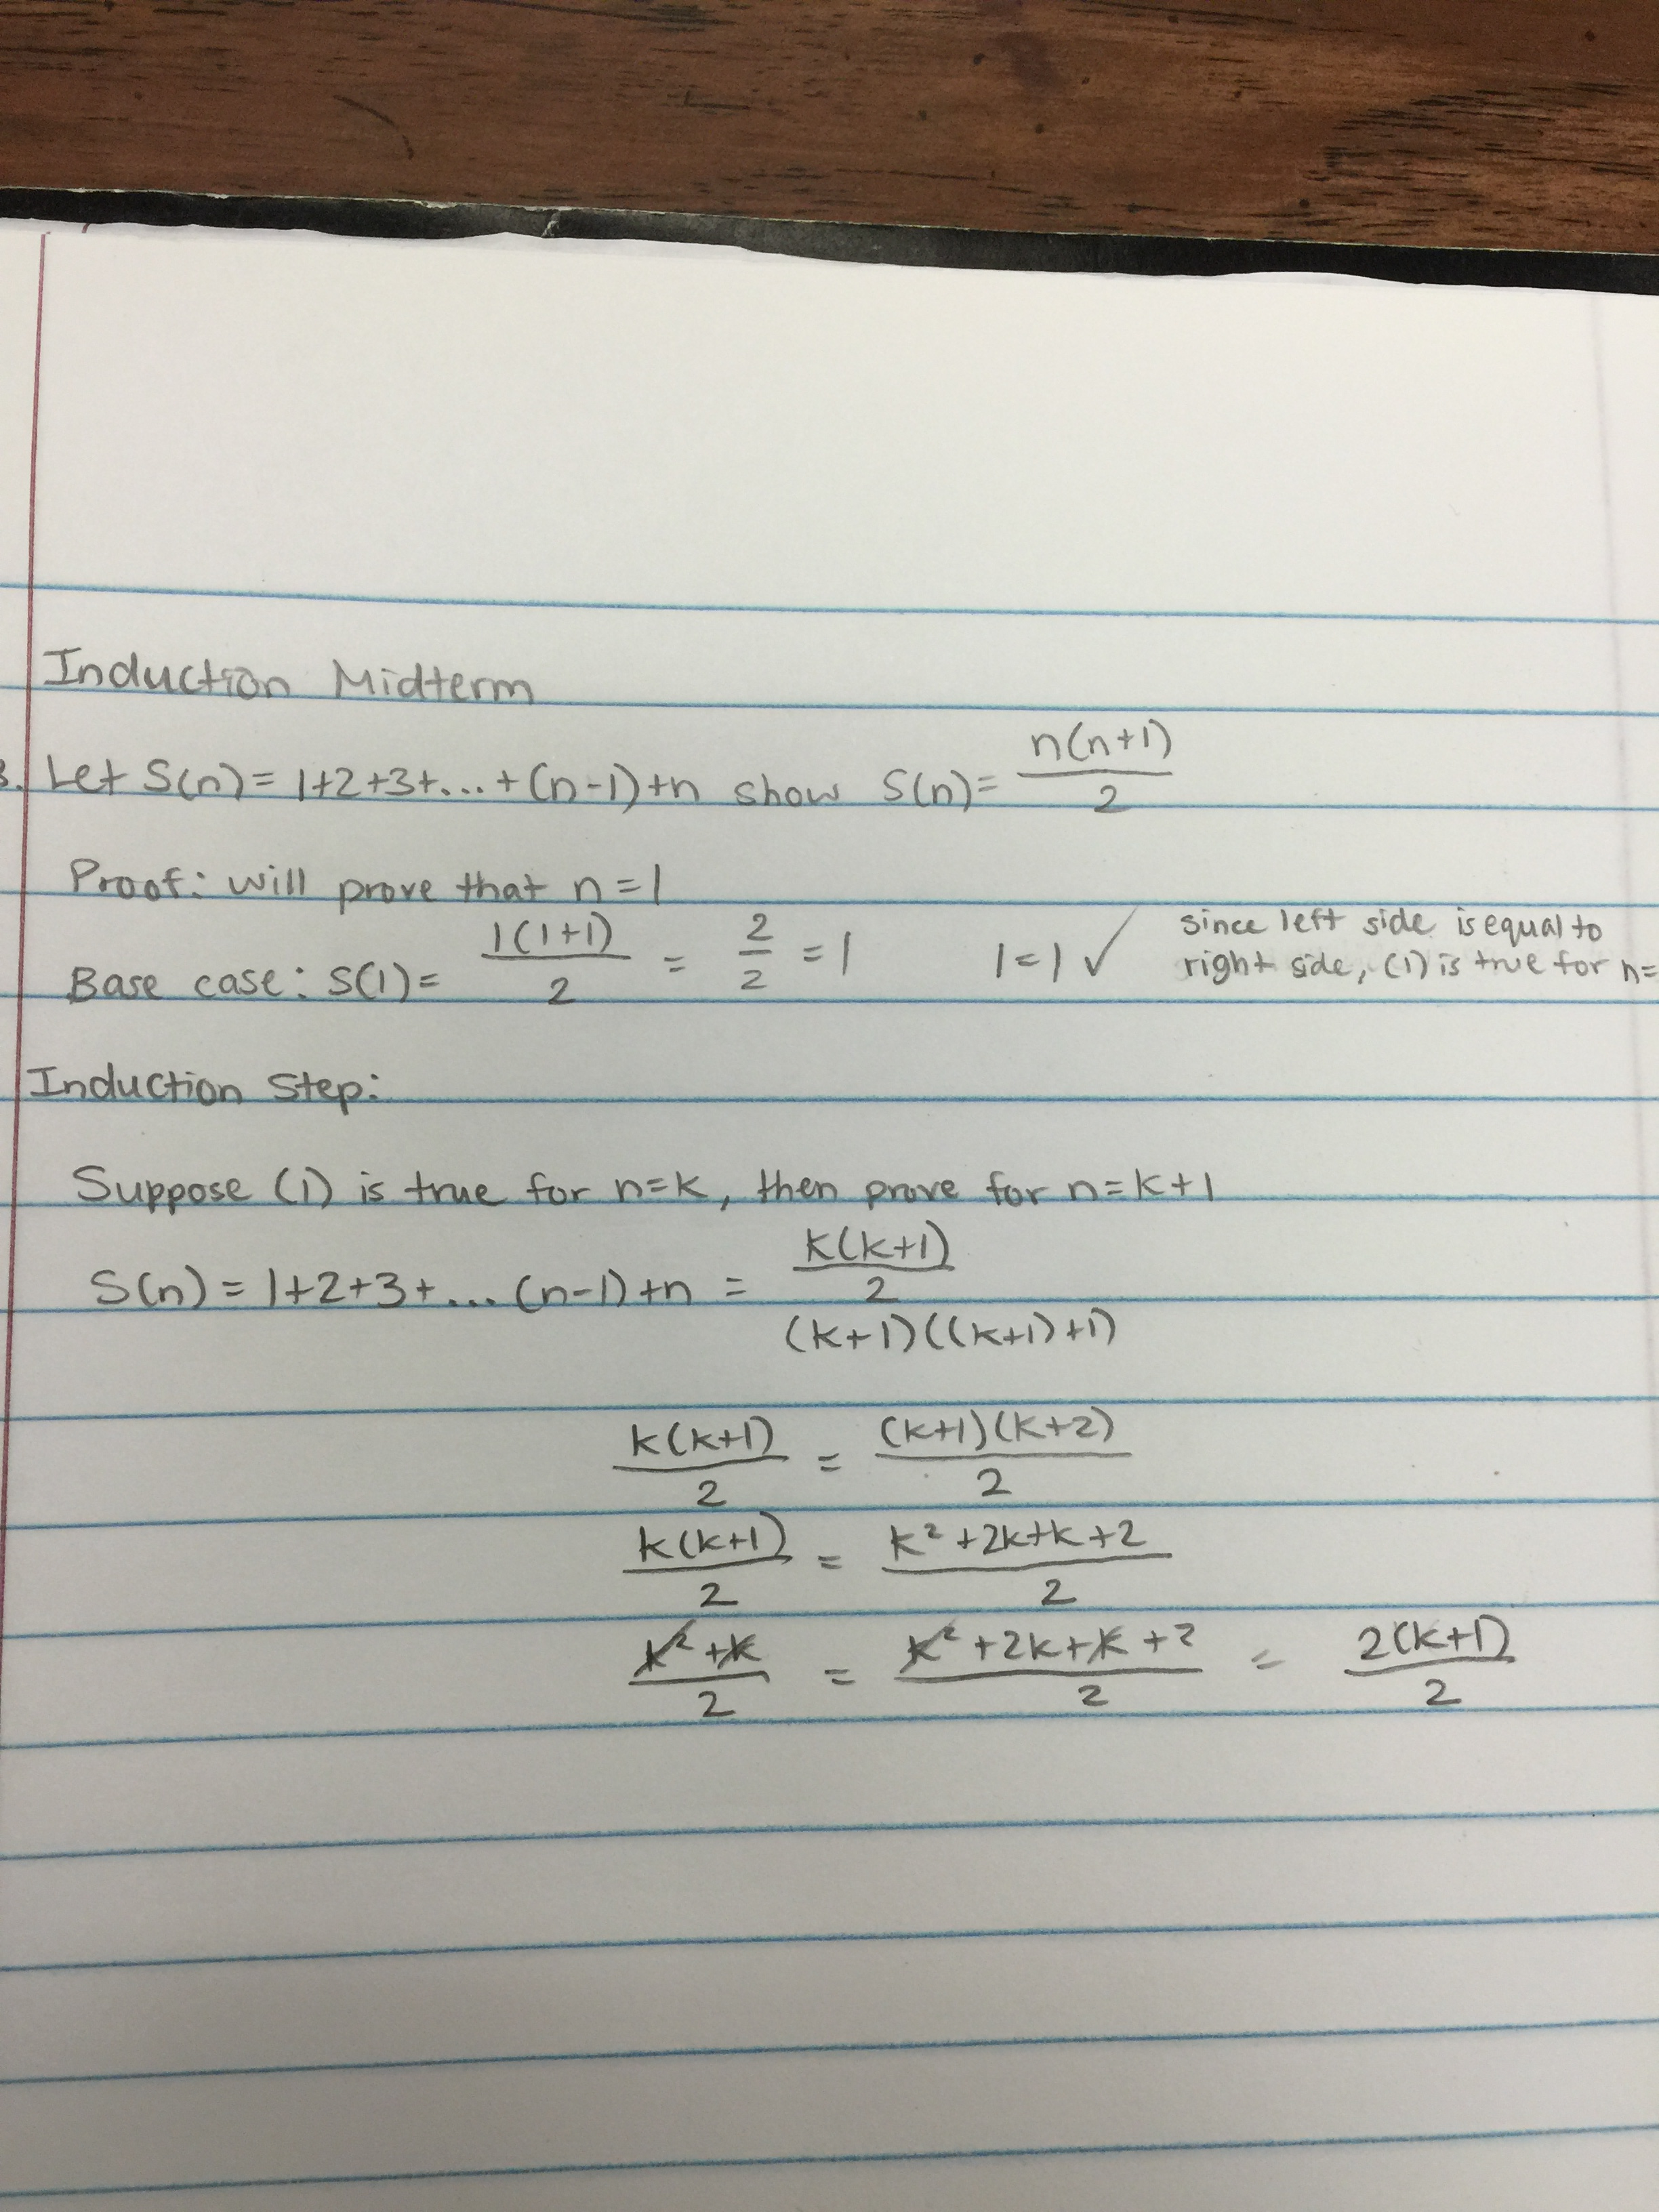 Induction Midterm
3. Let S(n) = 1+2+3+...+(n-1)+n show S(n) = n(n+1)/2
Proof: will prove that n=1
Base case: S(1) = 1(1+1)/2 = 2/2 = 1 1=1 ✓ since left side is equal to
right side, (1) is true for n=
Induction Step:
Suppose (1) is true for n=k, then prove for n=k+1
S(n) = 1+2+3+...(n-1)+n = k(k+1)/2
(k+1)((k+1)+1)
k(k+1)/2 = (k+1)(k+2)/2
k(k+1)/2 = k²+2k+k+2/2
k²+k/2 = k²+2k+k+2/2 = 2(k+1)/2